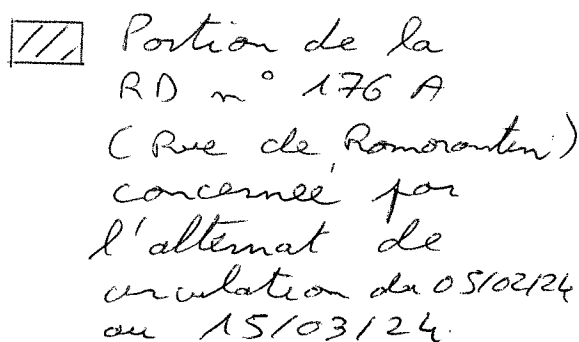 Portion de la
RD n° 176 A
(Rue de Romorantin)
concernée par
l'alternat de
circulation du 05/02/24
au 15/03/24.